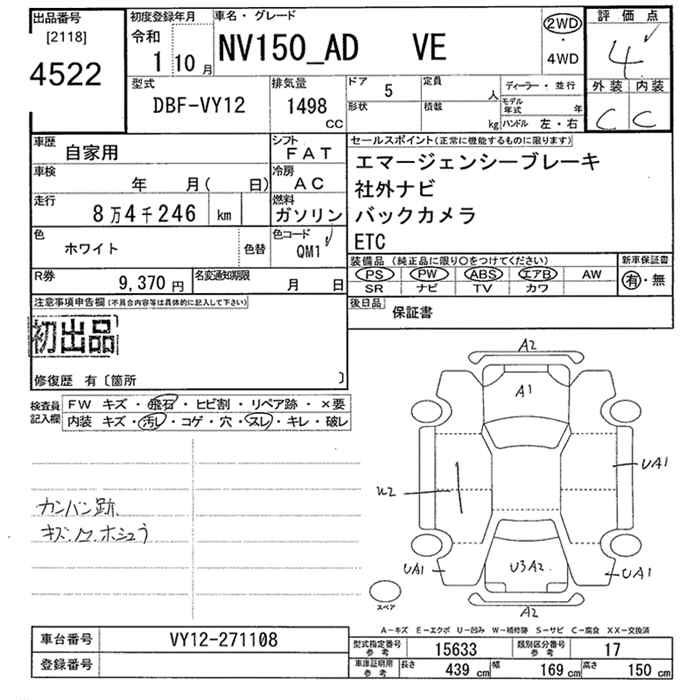 出品番号
[2118]
4522
初度登録年月
令和
1 10 月
車名・グレード
NV150_AD VE
2WD
・
4WD
評価点
4
外装 内装
C C
型式
DBF-VY12
排気量
1498
CC
ドア 5
定員 人
形状
積載 kg
ディーラー・並行
モデル年式 年
ハンドル 左・右
車歴 自家用
シフト FAT
車検 年 月( 日)
冷房 AC
走行 8万4千246 km
燃料 ガソリン
色 ホワイト 色替
色コード QM1
R券 9,370 円
名変通知期限 月 日
セールスポイント(正常に機能するものに限ります)
エマージェンシーブレーキ
社外ナビ
バックカメラ
ETC
装備品(純正品に限り〇をつけてください)
PS PW ABS エアB AW
SR ナビ TV カワ
新車保証書
有・無
後日品 保証書
注意事項申告欄(不具合内容等は具体的に記入して下さい)
初出品
修復歴 有〔箇所 〕
検査員記入欄
FW キズ・飛石・ヒビ割・リペア跡・×要
内装 キズ・汚レ・コゲ・穴・スレ・キレ・破レ
カンバン跡
A2
A1
UA1
U2
UA1
U3A2
UA1
A2
スペア
A－キズ E－エクボ U－凹み W－補修跡 S－サビ C－腐食 XX－交換済
車台番号 VY12-271108
登録番号
型式指定番号 参考 15633
類別区分番号 参考 17
車庫証明用 参考 長さ 439 cm 幅 169 cm 高さ 150 cm